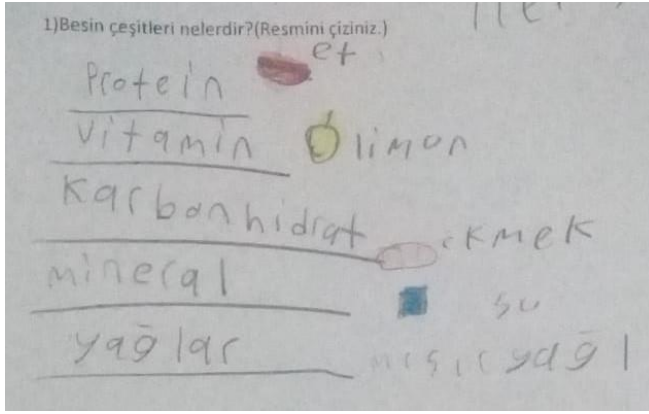 1)Besin çeşitleri nelerdir?(Resmini çiziniz.)
Protein et
vitamin limon
Karbonhidrat ekmek
mineral su
yağlar mısır yağı